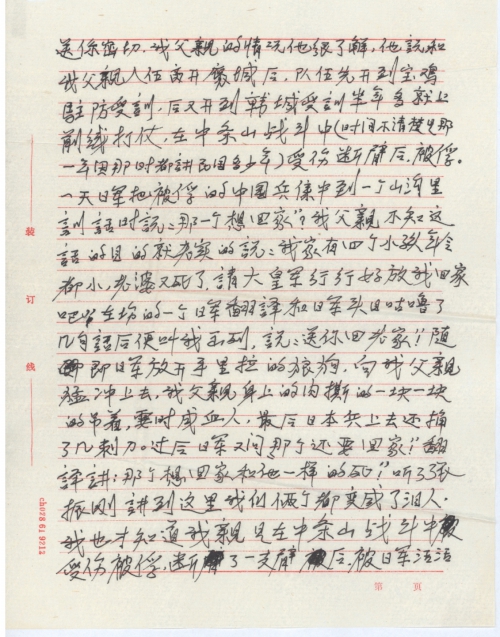 关系密切，我父亲的情况他很了解，他说和
我父亲入伍离开虞城后，队伍先开到宝鸡
驻防受训，后又开到韩城受训半年多就上
前线打仗，在中条山战斗中(时间不清楚是那
一年因那时都讲民国多少年)受伤断臂后被俘。
一天日军把被俘的中国兵集中到一个山沟里
训话时说：那一个想回家？我父亲不知这
话的目的就老实的说：我家有四个小孩年令
都小，老婆又死了，請大皇军行行好放我回家
吧！在场的一个日军翻譯和日军头目咕噜了
几句話后便叫我出列，説：送你回老家！！随
即日军放开手里拉的狼狗，向我父亲
猛冲上去，我父亲身上的肉撕的一块一块
的吊着，霎时成血人，最后日本兵上去还捅
了几刺刀。过后日军又问那个还要回家！翻
譯讲：那个想回家和他一样的死！听了张
振刚讲到这里我们俩个都变成了泪人。
我也才知道我亲是在中条山战斗中
受伤被俘，断了一支臂后，被日军活活
装
订
线
ch078 61 9212
第 页